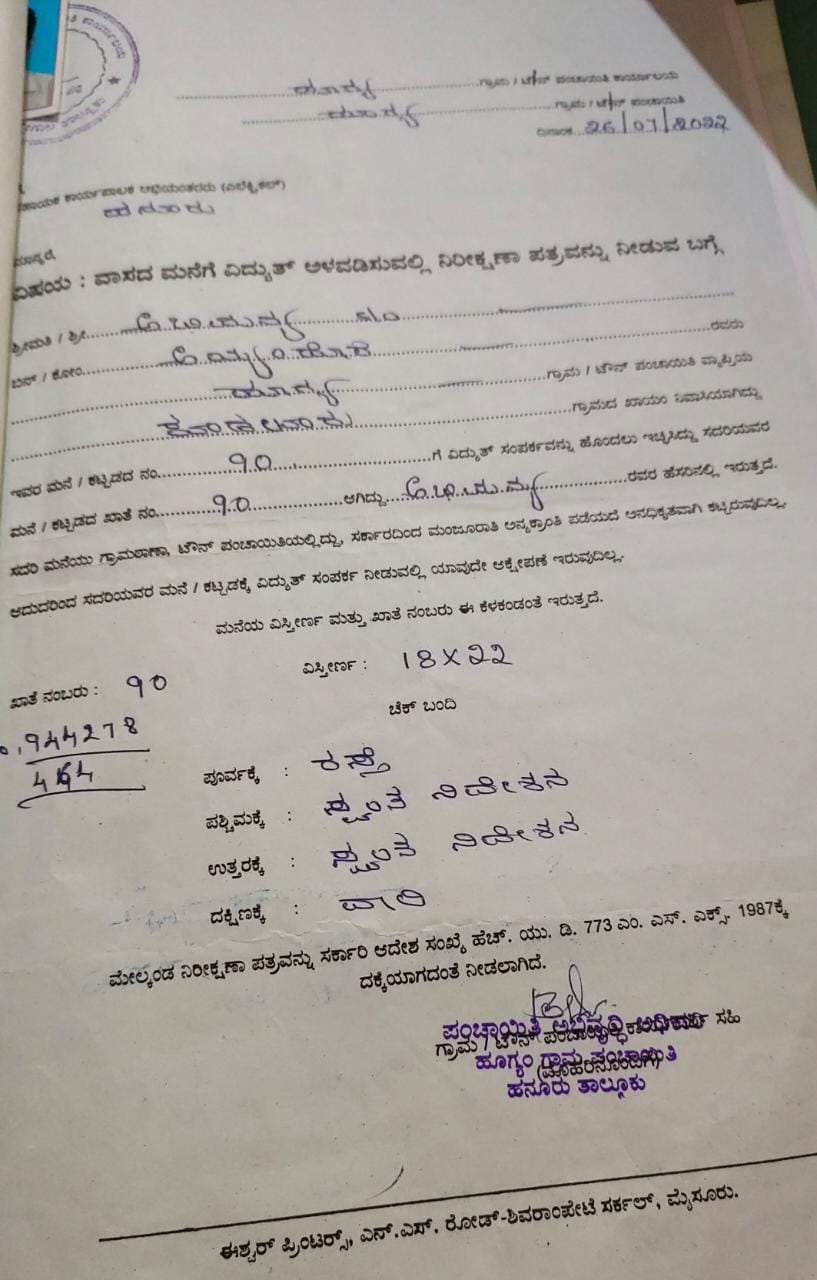 ಗ್ರಾಮ / ಟೌನ್ ಪಂಚಾಯಿತಿ ಕಾರ್ಯಾಲಯ
ಗ್ರಾಮ / ಟೌನ್ ಪಂಚಾಯಿತಿ
ದಿನಾಂಕ 26/07/2022
ಕಾರ್ಯಪಾಲಕ ಅಭಿಯಂತರರು (ಎಲೆಕ್ಟ್ರಿಕಲ್)
ಹನೂರು
ಮಾನ್ಯರೆ,
ವಿಷಯ : ವಾಸದ ಮನೆಗೆ ವಿದ್ಯುತ್ ಅಳವಡಿಸುವಲ್ಲಿ ನಿರೀಕ್ಷಣಾ ಪತ್ರವನ್ನು ನೀಡುವ ಬಗ್ಗೆ
ಶ್ರೀಮತಿ / ಶ್ರೀ
ಬಿನ್ / ಕೋಂ ರವರು
ಗ್ರಾಮ / ಟೌನ್ ಪಂಚಾಯಿತಿ ವ್ಯಾಪ್ತಿಯ
ಗ್ರಾಮದ ಖಾಯಂ ನಿವಾಸಿಯಾಗಿದ್ದು
ಇವರ ಮನೆ / ಕಟ್ಟಡದ ನಂ. 90 ಗೆ ವಿದ್ಯುತ್ ಸಂಪರ್ಕವನ್ನು ಹೊಂದಲು ಇಚ್ಛಿಸಿದ್ದು ಸದರಿಯವರ
ಮನೆ / ಕಟ್ಟಡದ ಖಾತೆ ನಂ. 90 ಆಗಿದ್ದು ರವರ ಹೆಸರಿನಲ್ಲಿ ಇರುತ್ತದೆ.
ಸದರಿ ಮನೆಯು ಗ್ರಾಮಠಾಣಾ, ಟೌನ್ ಪಂಚಾಯಿತಿಯಲ್ಲಿದ್ದು, ಸರ್ಕಾರದಿಂದ ಮಂಜೂರಾತಿ ಅನ್ಯಕ್ರಾಂತಿ ಪಡೆಯದೆ ಅನಧಿಕೃತವಾಗಿ ಕಟ್ಟಿರುವುದಿಲ್ಲ.
ಆದುದರಿಂದ ಸದರಿಯವರ ಮನೆ / ಕಟ್ಟಡಕ್ಕೆ ವಿದ್ಯುತ್ ಸಂಪರ್ಕ ನೀಡುವಲ್ಲಿ ಯಾವುದೇ ಆಕ್ಷೇಪಣೆ ಇರುವುದಿಲ್ಲ.
ಮನೆಯ ವಿಸ್ತೀರ್ಣ ಮತ್ತು ಖಾತೆ ನಂಬರು ಈ ಕೆಳಕಂಡಂತೆ ಇರುತ್ತದೆ.
ಖಾತೆ ನಂಬರು : 90 ವಿಸ್ತೀರ್ಣ : 18X22
ಚೆಕ್ ಬಂದಿ
944278
ಪೂರ್ವಕ್ಕೆ : ರಸ್ತೆ
ಪಶ್ಚಿಮಕ್ಕೆ : ಸ್ವಂತ ನಿವೇಶನ
ಉತ್ತರಕ್ಕೆ : ಸ್ವಂತ ನಿವೇಶನ
ದಕ್ಷಿಣಕ್ಕೆ :
ಮೇಲ್ಕಂಡ ನಿರೀಕ್ಷಣಾ ಪತ್ರವನ್ನು ಸರ್ಕಾರಿ ಆದೇಶ ಸಂಖ್ಯೆ ಹೆಚ್. ಯು. ಡಿ. 773 ಎಂ. ಎಸ್. ಎಕ್ಸ್. 1987ಕ್ಕೆ
ದಕ್ಕೆಯಾಗದಂತೆ ನೀಡಲಾಗಿದೆ.
ಪಂಚಾಯಿತಿ ಅಭಿವೃದ್ಧಿ ಅಧಿಕಾರಿ
ಗ್ರಾಮ / ಟೌನ್ ಪಂಚಾಯಿತಿ ಸಹಿ
ಹೂಗ್ಯಂ ಗ್ರಾಮ ಪಂಚಾಯಿತಿ
(ಮೊಹರಿನೊಂದಿಗೆ)
ಹನೂರು ತಾಲ್ಲೂಕು
ಈಶ್ವರ್ ಪ್ರಿಂಟರ್ಸ್, ಎನ್.ಎಸ್. ರೋಡ್-ಶಿವರಾಂಪೇಟೆ ಸರ್ಕಲ್, ಮೈಸೂರು.